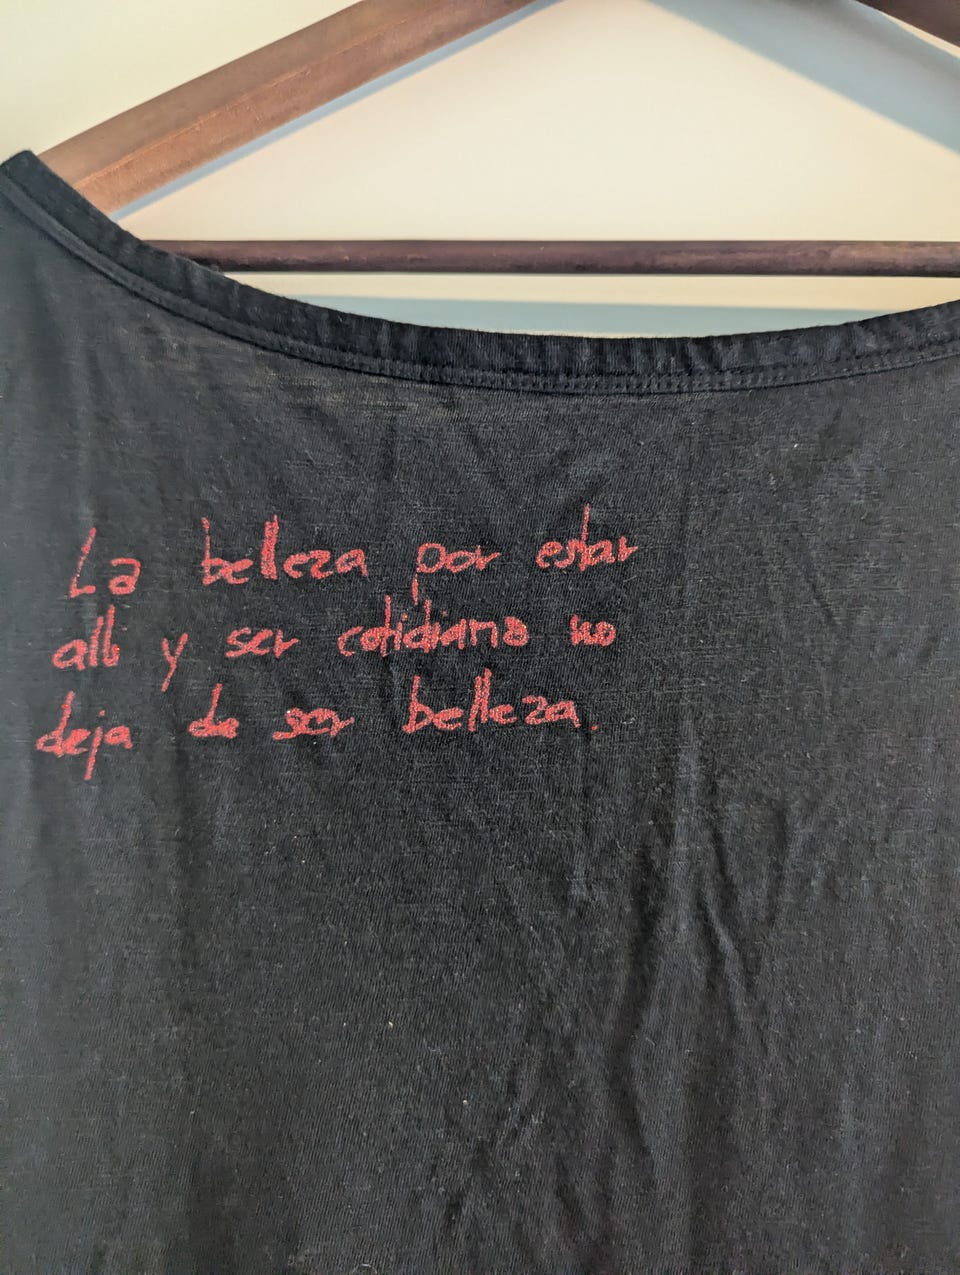 La belleza por estar
alli y ser cotidiano no
deja de ser belleza.